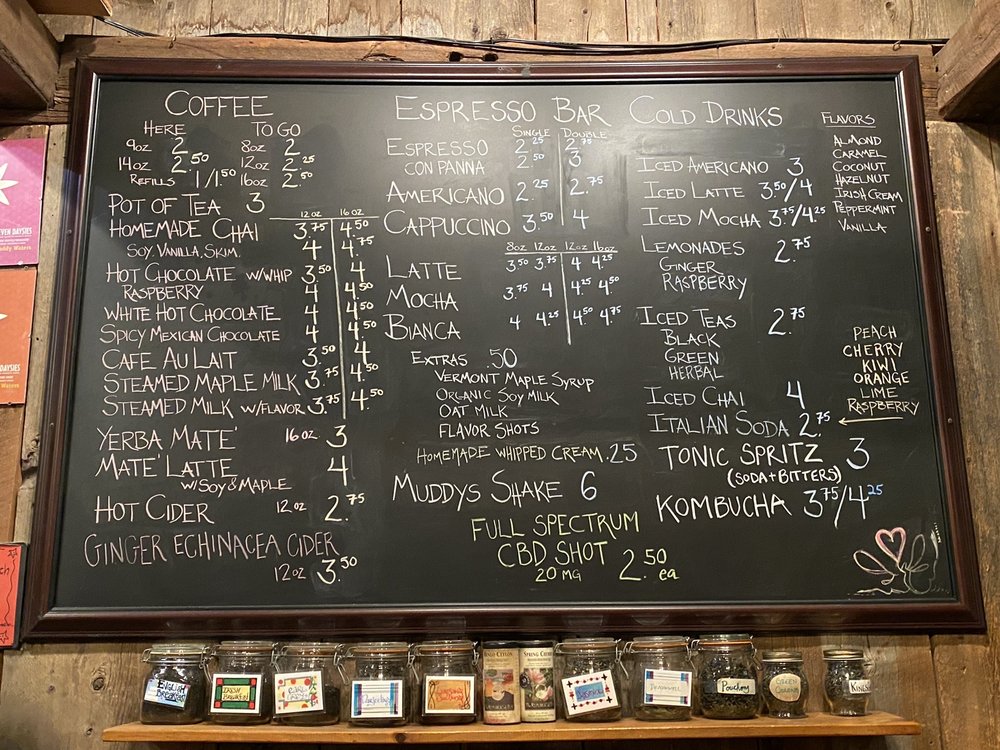 COFFEE
HERE TO GO
9oz 2 8oz 2
14oz 2.50 12oz 2.25
REFILLS 1/1.50 16oz 2.50
POT OF TEA 3
12 oz 16 oz
HOMEMADE CHAI 3.75 4.50
SOY, VANILLA, SKIM. 4 4.75
HOT CHOCOLATE W/WHIP 3.50 4
RASPBERRY 4 4.50
WHITE HOT CHOCOLATE 4 4.50
SPICY MEXICAN CHOCOLATE 4 4.50
CAFE AU LAIT 3.50 4
STEAMED MAPLE MILK 3.75 4.50
STEAMED MILK W/FLAVOR 3.75 4.50
YERBA MATE' 16 oz. 3
MATE' LATTE 4
W/SOY & MAPLE
HOT CIDER 12oz 2.75
GINGER ECHINACEA CIDER
12oz 3.50
ESPRESSO BAR
SINGLE DOUBLE
ESPRESSO 2.25 2.75
CON PANNA 2.50 3
AMERICANO 2.25 2.75
CAPPUCCINO 3.50 4
8oz 12oz 12oz 16oz
LATTE 3.50 3.75 4 4.25
MOCHA 3.75 4 4.25 4.50
BIANCA 4 4.25 4.50 4.75
EXTRAS .50
VERMONT MAPLE SYRUP
ORGANIC SOY MILK
OAT MILK
FLAVOR SHOTS
HOMEMADE WHIPPED CREAM .25
MUDDYS SHAKE 6
FULL SPECTRUM
CBD SHOT 2.50 ea
20 MG
COLD DRINKS
ICED AMERICANO 3
ICED LATTE 3.50/4
ICED MOCHA 3.75/4.25
LEMONADES 2.75
GINGER
RASPBERRY
ICED TEAS 2.75
BLACK
GREEN
HERBAL
ICED CHAI 4
ITALIAN SODA 2.75
TONIC SPRITZ 3
(SODA + BITTERS)
KOMBUCHA 3.75/4.25
FLAVORS
ALMOND
CARAMEL
COCONUT
HAZELNUT
IRISH CREAM
PEPPERMINT
VANILLA
PEACH
CHERRY
KIWI
ORANGE
LIME
RASPBERRY
ENGLISH BREAKFAST
IRISH BREAKFAST